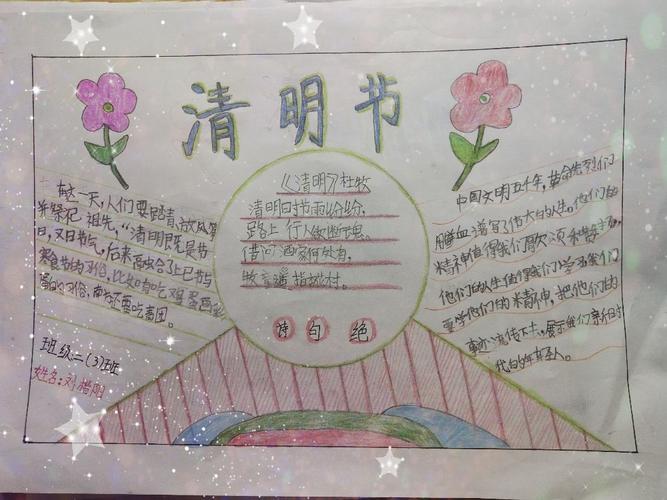 清明节
在这一天，人们要踏青、放风筝
并祭祀祖先，“清明既是节
日，又日节气，后来融合了上巳节与
寒食节的习俗，比如有吃鸡蛋画
蛋的习俗，南方还要吃青团。
班级二(3)班
姓名：刘
《清明》杜牧
清明时节雨纷纷，
路上行人欲断魂。
借问酒家何处有，
牧童遥指杏花村。
诗 句 绝
中国文明五千年，革命先烈们
用鲜血谱写了伟大的人生。他们的
精神值得我们歌颂和赞
他们的人生值得我们学习我们
要学他们的精神，把他们的
事迹流传下去，展示我们新时
代的年